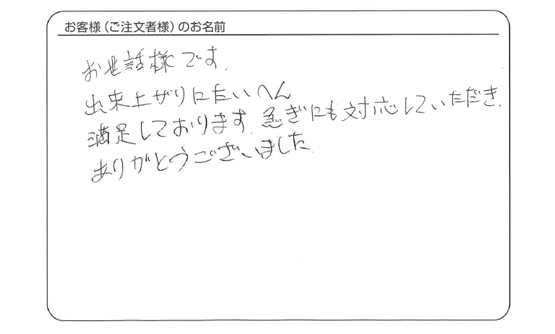 お客様（ご注文者様）のお名前
お世話様です.
出来上がりにたいへん
満足しております.急ぎにも対応していただき.
ありがとうございました.